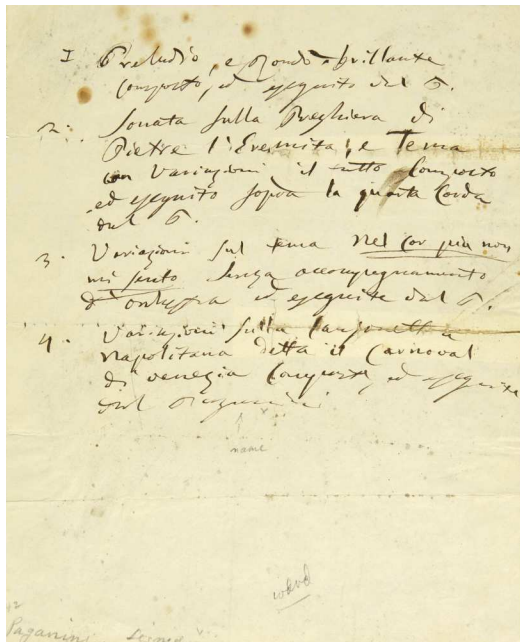 1 Preludio, e Rondò brillante
composto, ed eseguito dal P.
2. Sonata sulla Preghiera di
Pietro l'Eremita, e Tema
con Variazioni il tutto composto
ed eseguito sopra la quarta Corda
dal P.
3. Variazioni sul tema Nel cor più non
mi sento senza accompagnamento
d'orchestra ed eseguite dal P.
4. Variazioni sulla Canzonetta
Napolitana detta il Carnoval
di Venezia Composte, ed eseguite
dal
name
Paganini Signed